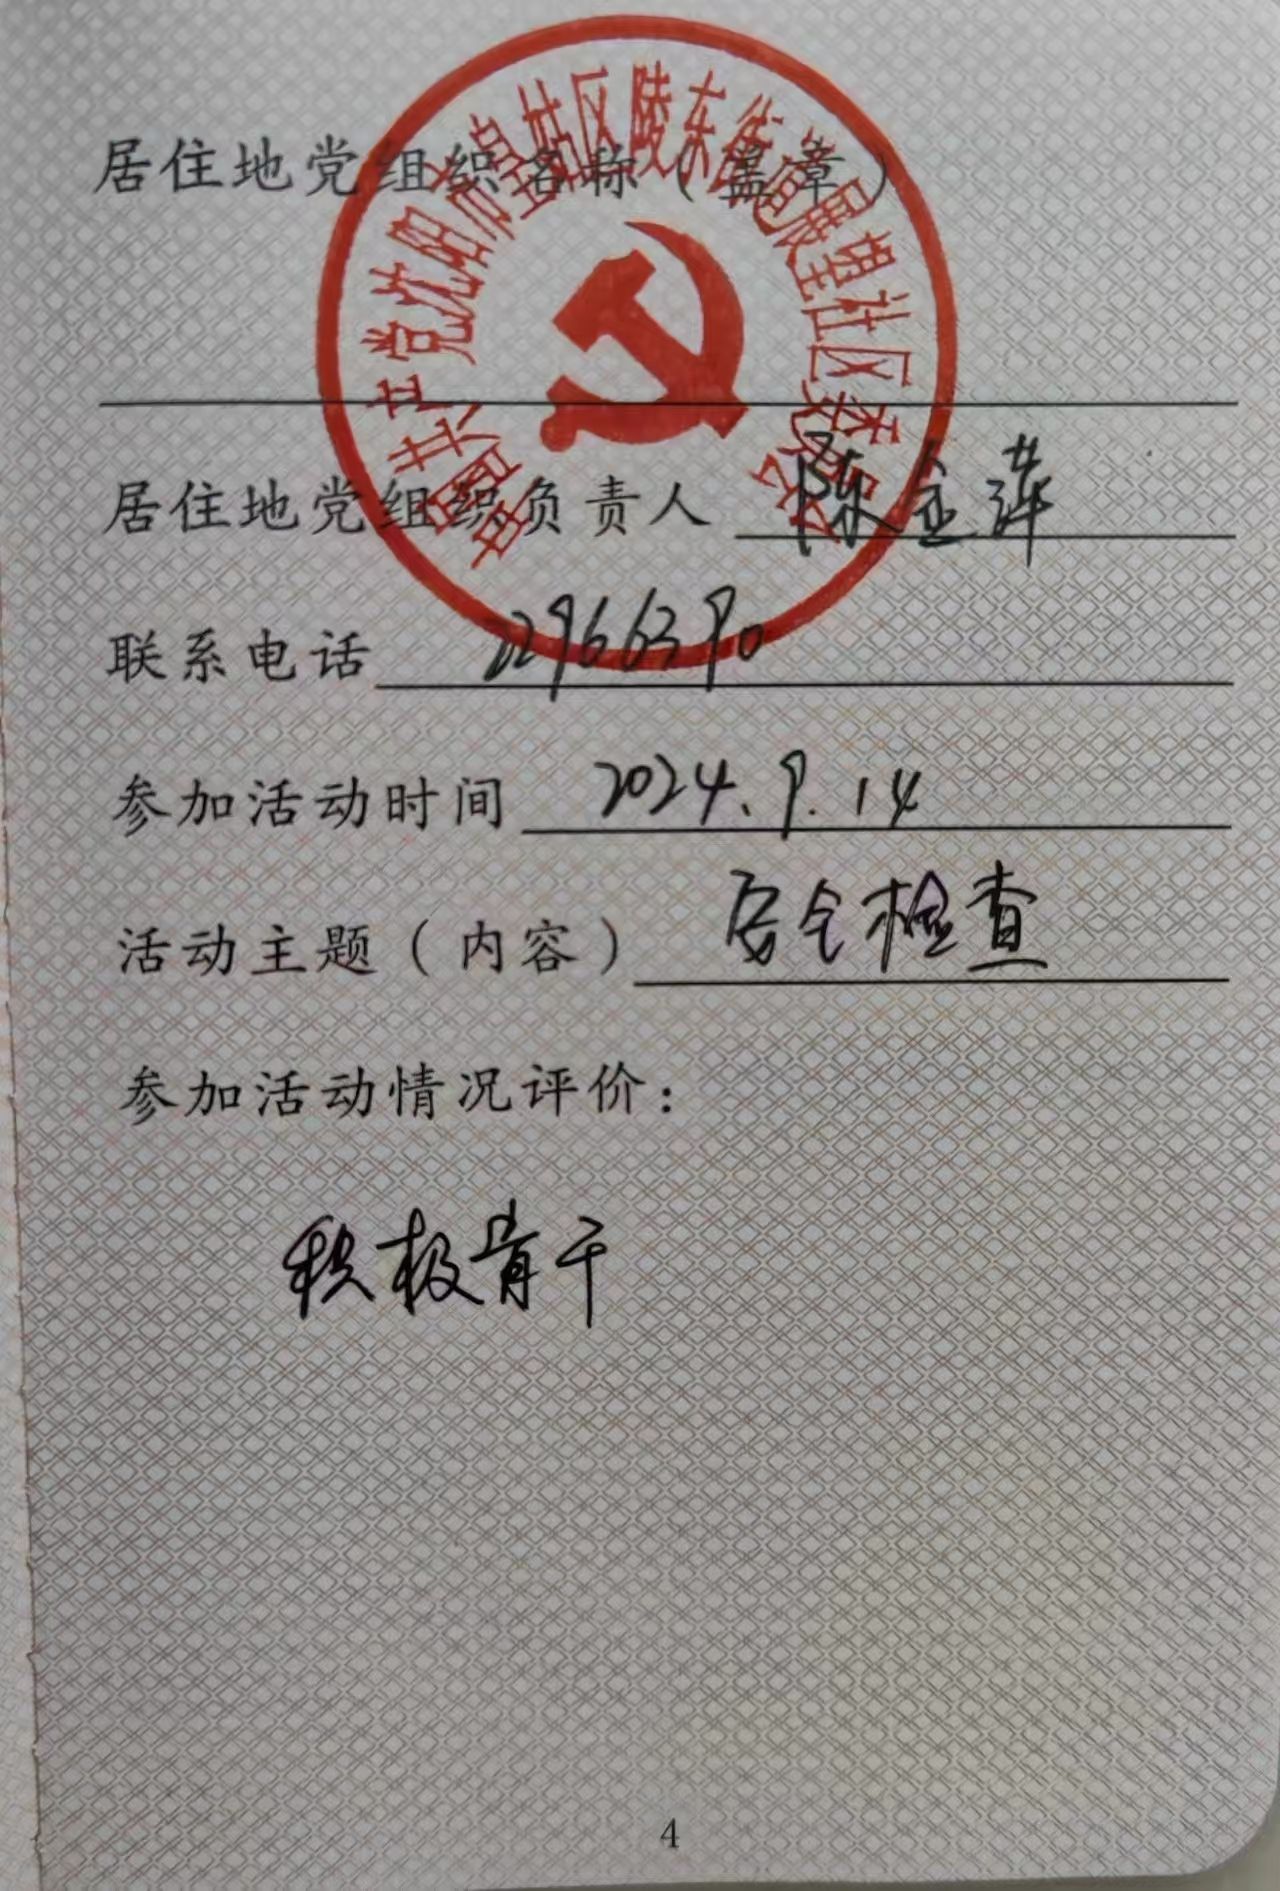 中国共产党沈阳市皇姑区陵东街道展望社区委员会
居住地党组织名称（盖章）
居住地党组织负责人 陈金萍
联系电话 22966390
参加活动时间 2024.9.14
活动主题（内容） 安全检查
参加活动情况评价：
积极肯干
4